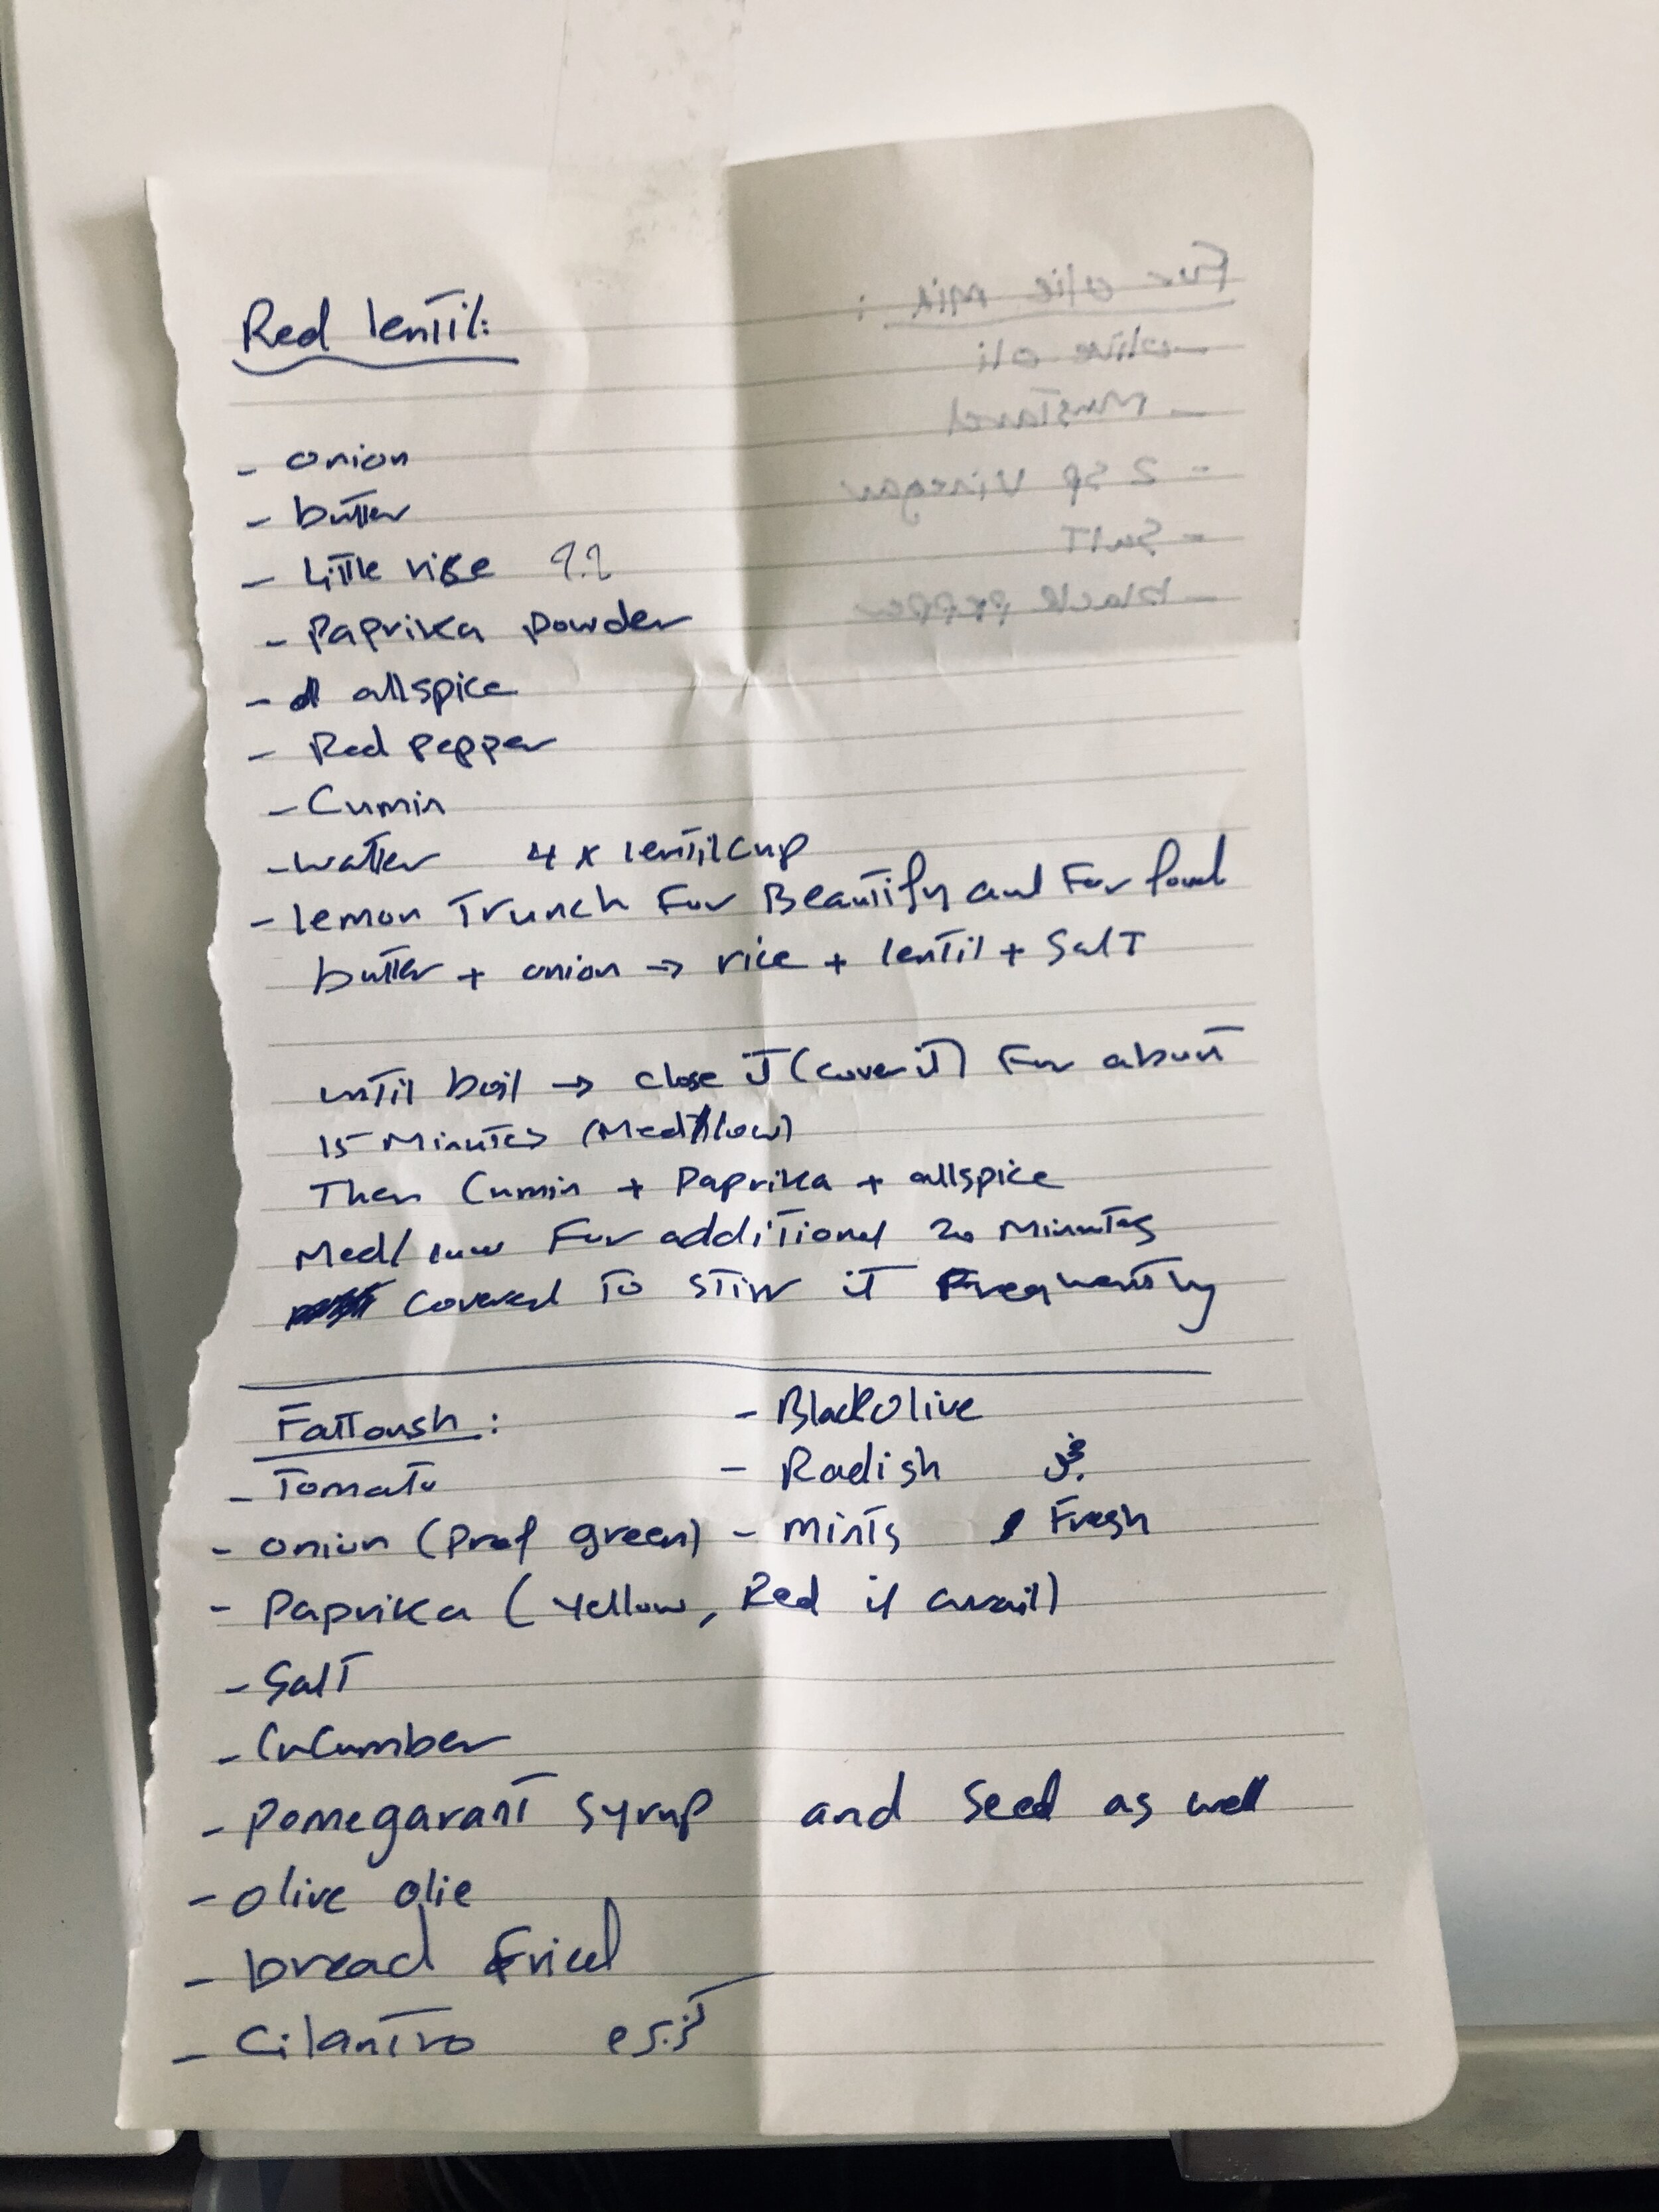 Red lentil:
- onion
- butter
- Little rise ??
- Paprika powder
- allspice
- Red pepper
- Cumin
- watter 4 x lentil cup
- lemon Trunch For Beautify and For food
butter + onion → rice + lentil + Salt
until boil → close it (cover it) For about
15 Minutes (Med/low)
Then Cumin + Paprika + allspice
Med/low For additional 20 Minutes
Covered To stirr it Frequently
Fattoush:
- Tomato
- onion (Pref green)
- Paprika (yellow, Red if avail)
- Salt
- Cucumber
- Pomegarant syrup and Seed as well
- olive olie
- bread Fried
- Cilantro
- Black Olive
- Radish فجل
- mints Fresh
For olie mix:
- olive oli
- Mustard
- 2 sp Vinegar
- Salt
- black pepper